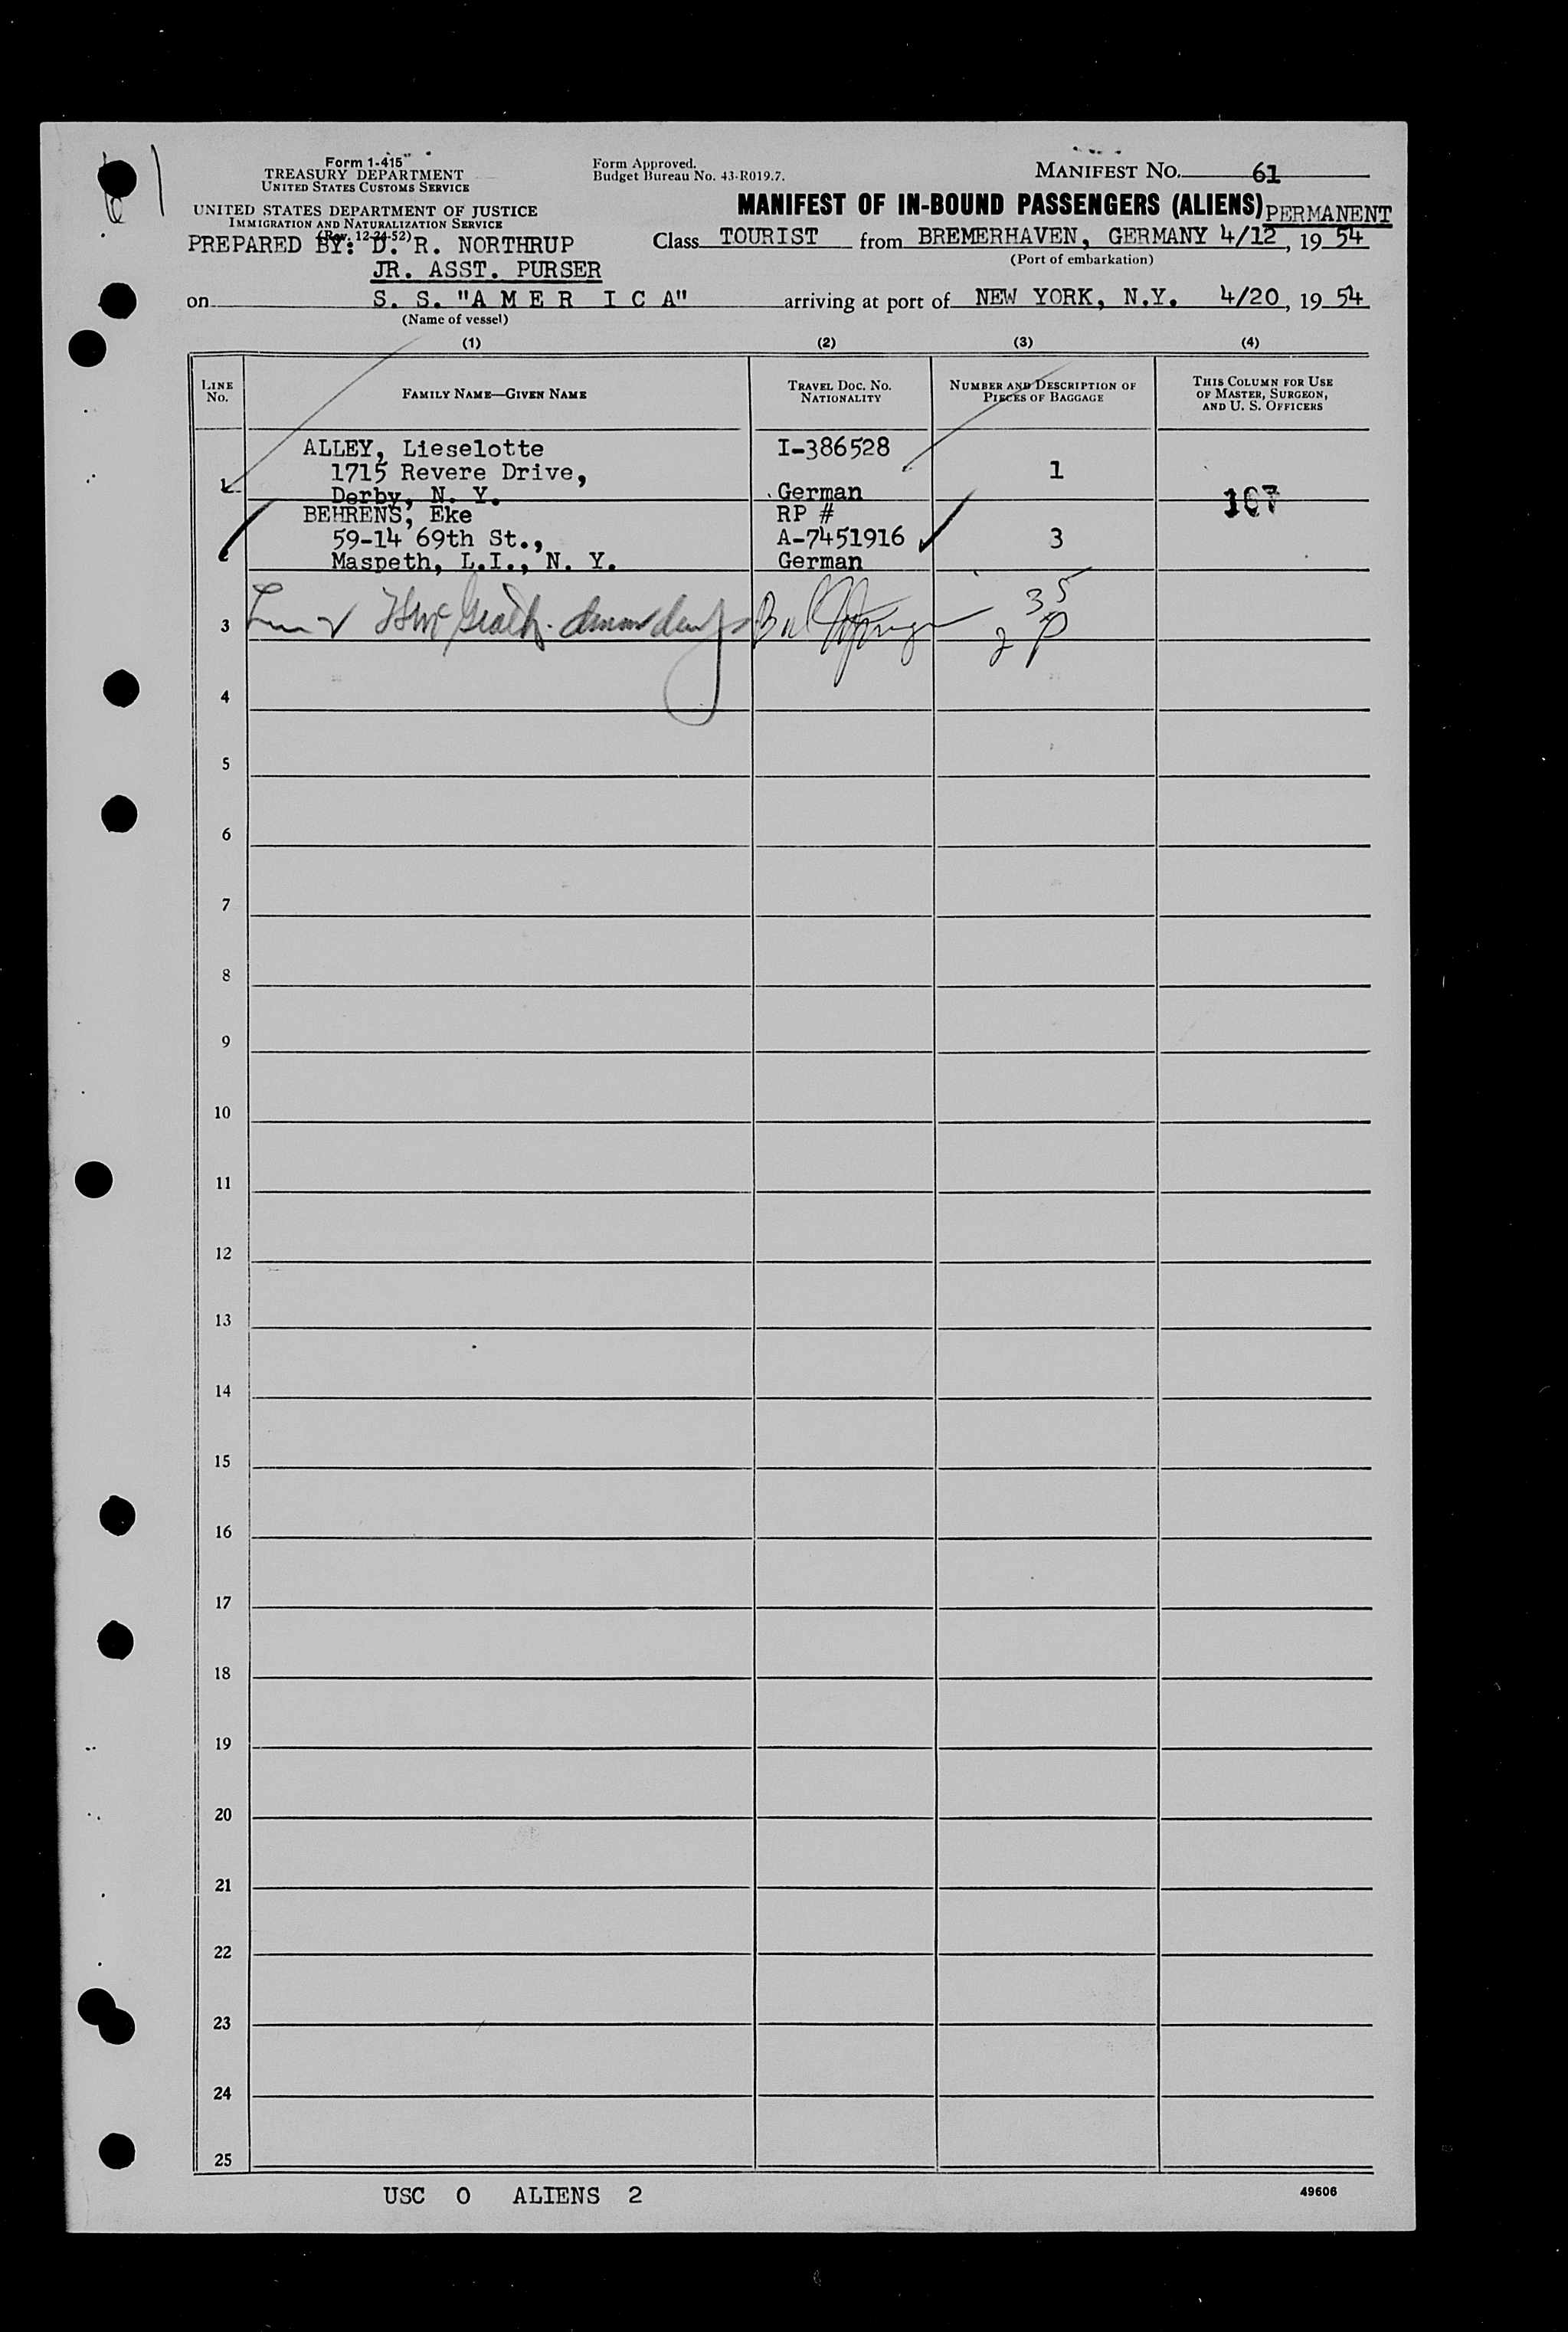 Form 1-415
TREASURY DEPARTMENT
UNITED STATES CUSTOMS SERVICE
UNITED STATES DEPARTMENT OF JUSTICE
IMMIGRATION AND NATURALIZATION SERVICE
(Rev. 12-24-52)
PREPARED BY: D. R. NORTHRUP
JR. ASST. PURSER
Form Approved.
Budget Bureau No. 43-R019.7.
MANIFEST NO. 61
MANIFEST OF IN-BOUND PASSENGERS (ALIENS) PERMANENT
Class TOURIST from BREMERHAVEN, GERMANY 4/12, 19 54
(Port of embarkation)
on S. S. "A M E R I C A" arriving at port of NEW YORK, N.Y. 4/20, 19 54
(Name of vessel)
(1) (2) (3) (4)
LINE NO. FAMILY NAME—GIVEN NAME TRAVEL DOC. NO. NATIONALITY NUMBER AND DESCRIPTION OF PIECES OF BAGGAGE THIS COLUMN FOR USE OF MASTER, SURGEON, AND U. S. OFFICERS
ALLEY, Lieselotte I-386528
1715 Revere Drive, 1
1 Derby, N. Y. German 167
BEHRENS, Eke RP #
59-14 69th St., A-7451916 3
2 Maspeth, L.I., N. Y. German
3 35
2 P
4
5
6
7
8
9
10
11
12
13
14
15
16
17
18
19
20
21
22
23
24
25
USC 0 ALIENS 2
49606